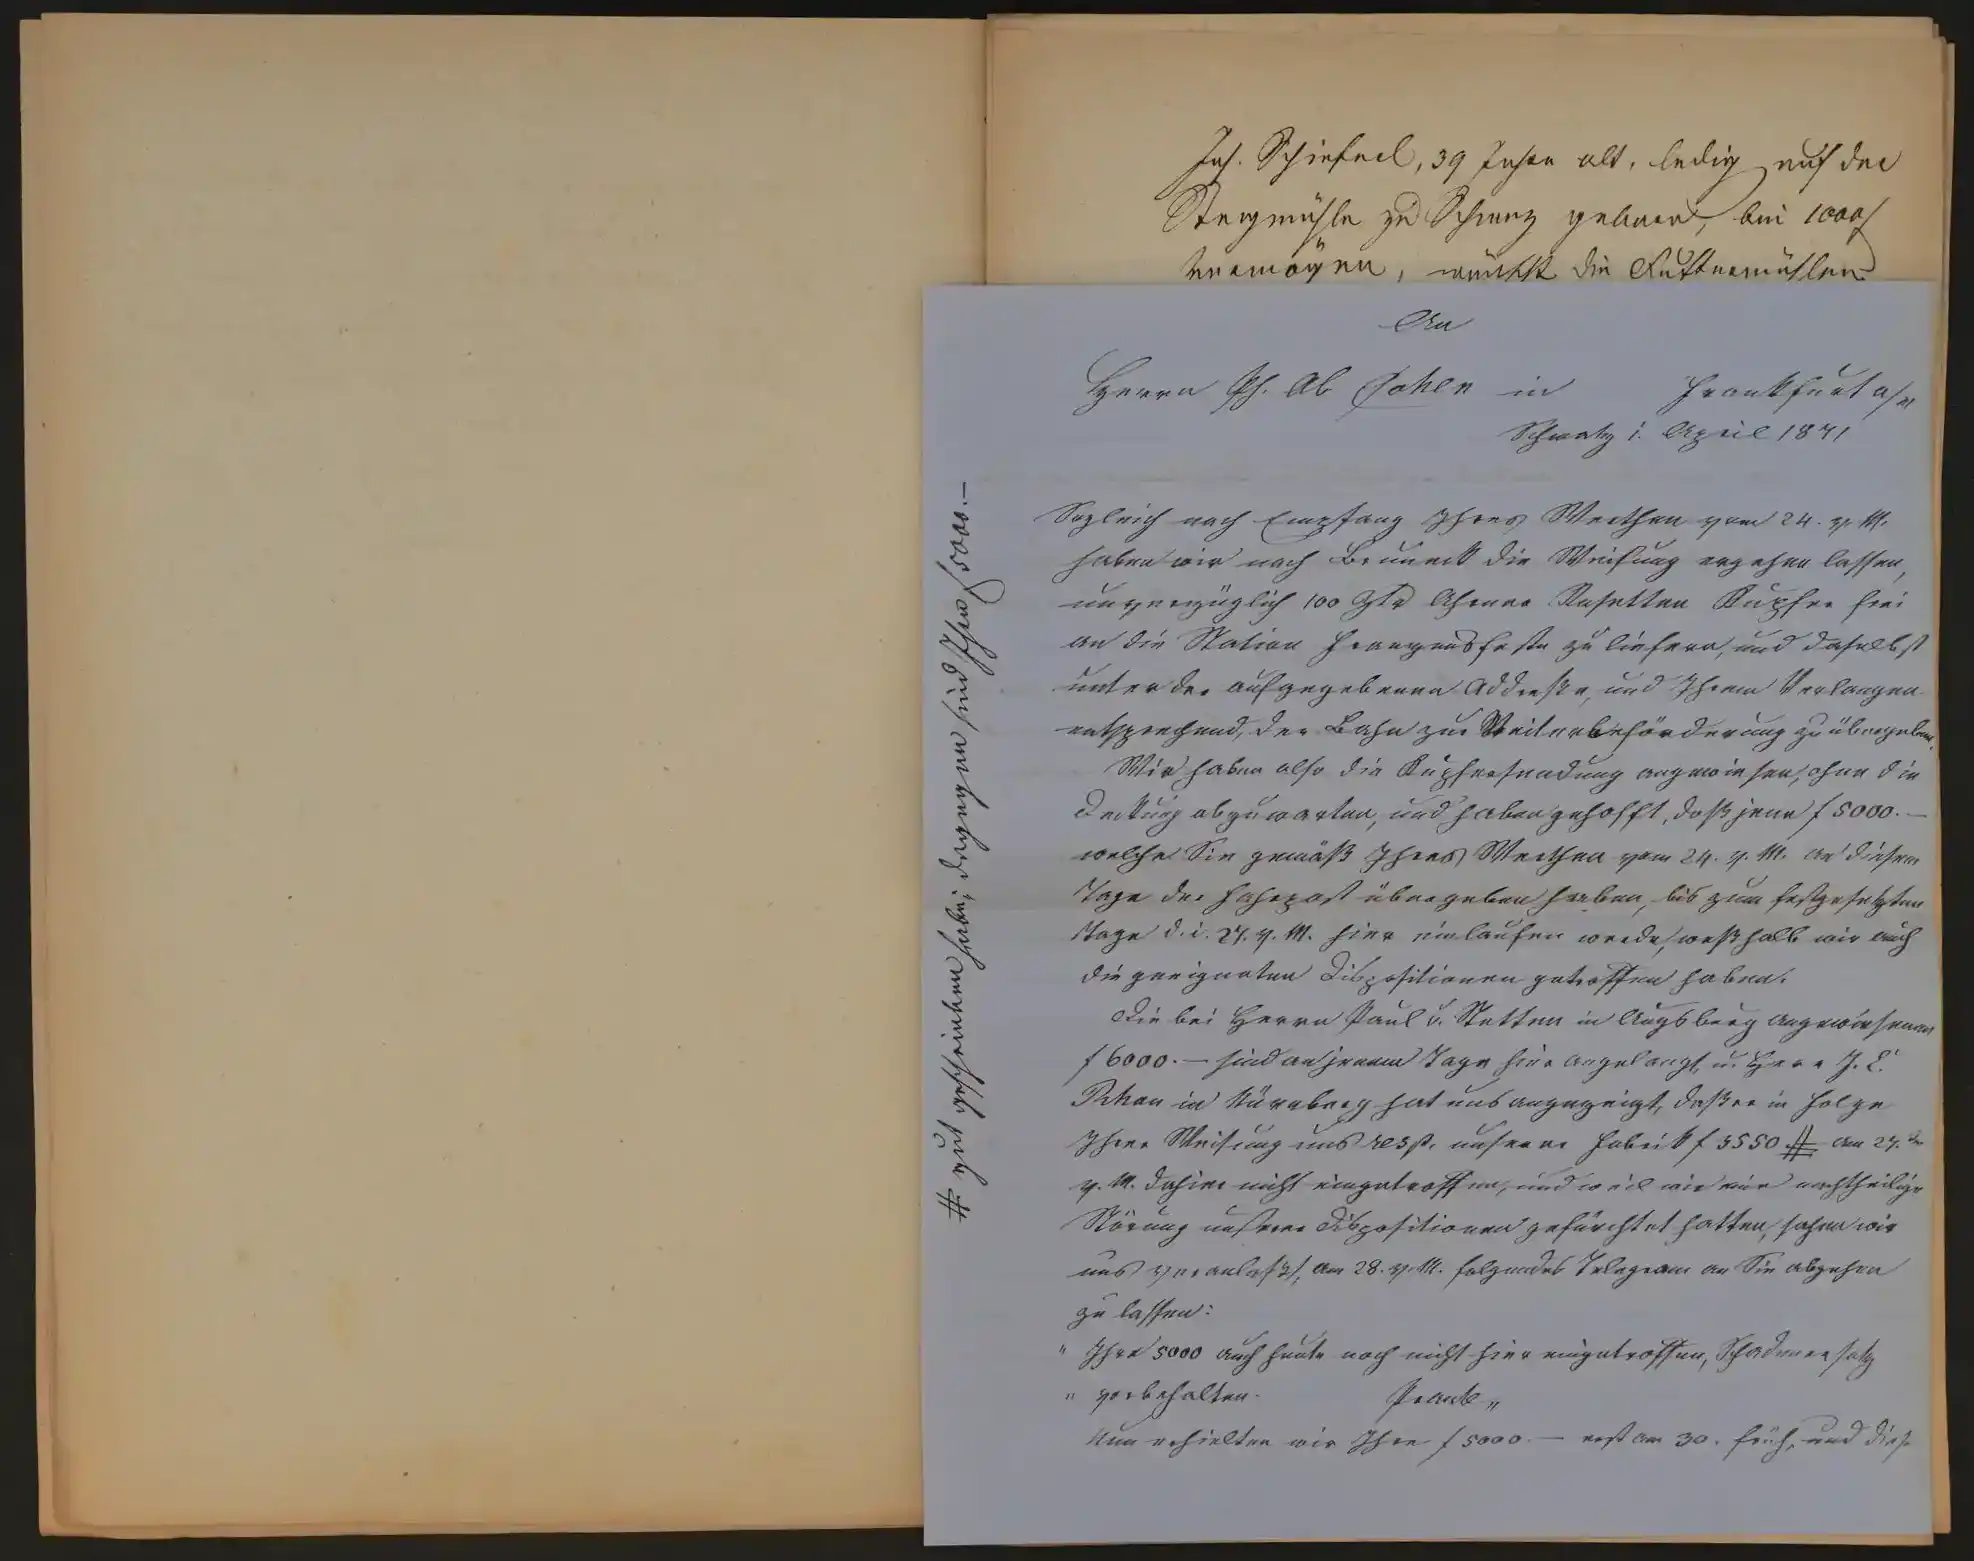 Joh. Schiestl, 39 Jahre alt, ledig auf der
zu Schwaz geboren, bei 1000 f
vermögen, die
An
Herrn Ph. Ab Cohen in Frankfurt a/m
Schwatz 1. April 1871
Sogleich nach Empfang Ihres Werthen vom 24. v. M.
haben wir nach Bruneck die Weisung ergehen lassen,
unverzüglich 100 Ztr Ahrner Rosetten Kupfer frei
an die Station Franzensfeste zu liefern, und daselbst
unter der aufgegebenen Addresse, und Ihrem Verlangen
entsprechend, der Bahn zur Weiterbeförderung zu übergeben.
Wir haben also die Kupfersendung angewiesen, ohne die
Deckung abzuwarten, und haben gehofft, daß jene f 5000.—
welche Sie gemäß Ihres Werthen vom 24. v. M. an diesem
Tage der Fahrpost übergeben haben, bis zum festgesetzten
Tage d. i. 27. v. M. hier einlaufen werde, weßhalb wir auch
die geeigneten Dispositionen getroffen haben.
Die bei Herrn Paul v. Stetten in Augsburg angewiesenen
f 6000.— sind an jenem Tage hier angelangt, u. Herr J. C.
in Nürnberg hat uns angezeigt, daß er in Folge
Ihrer Weisung uns resp. unserer Fabrik f 3550 # am 27. 
v. M. dahier nicht eingetroffen, und weil wir eine nachtheilige
Störung unserer Dispositionen gefürchtet hatten, sahen wir
uns veranlaßt, am 28. v. M. folgendes Telegram an Sie abgehen
zu lassen:
" Ihre 5000 auch heute noch nicht hier eingetroffen, Schadenersatz
" vorbehalten. "
Nun erhielten wir Ihre f 5000.— erst am 30. früh, und diese
# gut geschrieben habe; dagegen sind Ihre f 5000.—